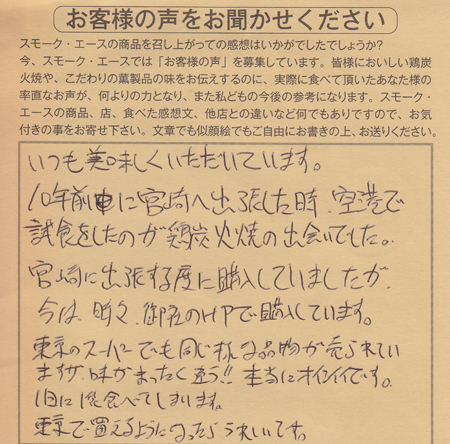 お客様の声をお聞かせください
スモーク・エースの商品を召し上がっての感想はいかがでしたでしょうか?
今、スモーク・エースでは「お客様の声」を募集しています。皆様においしい鶏炭
火焼や、こだわりの薫製品の味をお伝えするのに、実際に食べて頂いたあなた様の
率直なお声が、何よりの力となり、また私どもの今後の参考になります。スモーク・
エースの商品、店、食べた感想文、他店との違いなど何でもありですので、お気
付きの事をお寄せ下さい。文章でも似顔絵でもご自由にお書きの上、お送りください。
いつも美味しくいただいています。
10年前に宮崎へ出張した時、空港で
試食をしたのが鶏炭火焼の出会いでした。
宮崎に出張する度に購入していましたが、
今は、時々、御社のHPで購入しています。
東京のスーパーでも同じ様な品物が売られてい
ますが、味がまったく違う!! 本当にオイシイです。
1日に1袋食べてしまいます。
東京で買えるようになったらうれしいです。